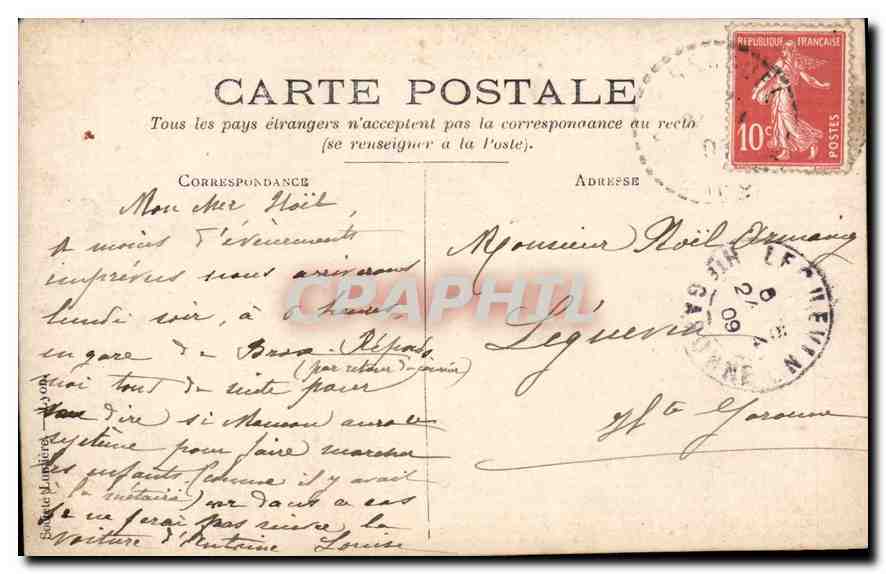 CARTE POSTALE
Tous les pays étrangers n'acceptent pas la correspondance au recto
(se renseigner a la Poste).
CORRESPONDANCE
ADRESSE
REPUBLIQUE FRANÇAISE
10c
POSTES
Mon cher Noël,
A moins d'évènements
imprévus nous arriverons
lundi soir, à 6 heures
en gare de Brax. Réponds
(par retour du courrier)
moi tout de suite pour
dire si Maman aura le
système pour faire marcher
les enfants (comme il y avait
à la métairie) car dans ce cas
je ne ferai pas suivre la
voiture d'Antoine Louise
Monsieur Noël Armaing
Léguevin
Hte Garonne
LEGUEVIN
8
24
09
GARONNE
CPARAMA
Société Lumière - Lyon